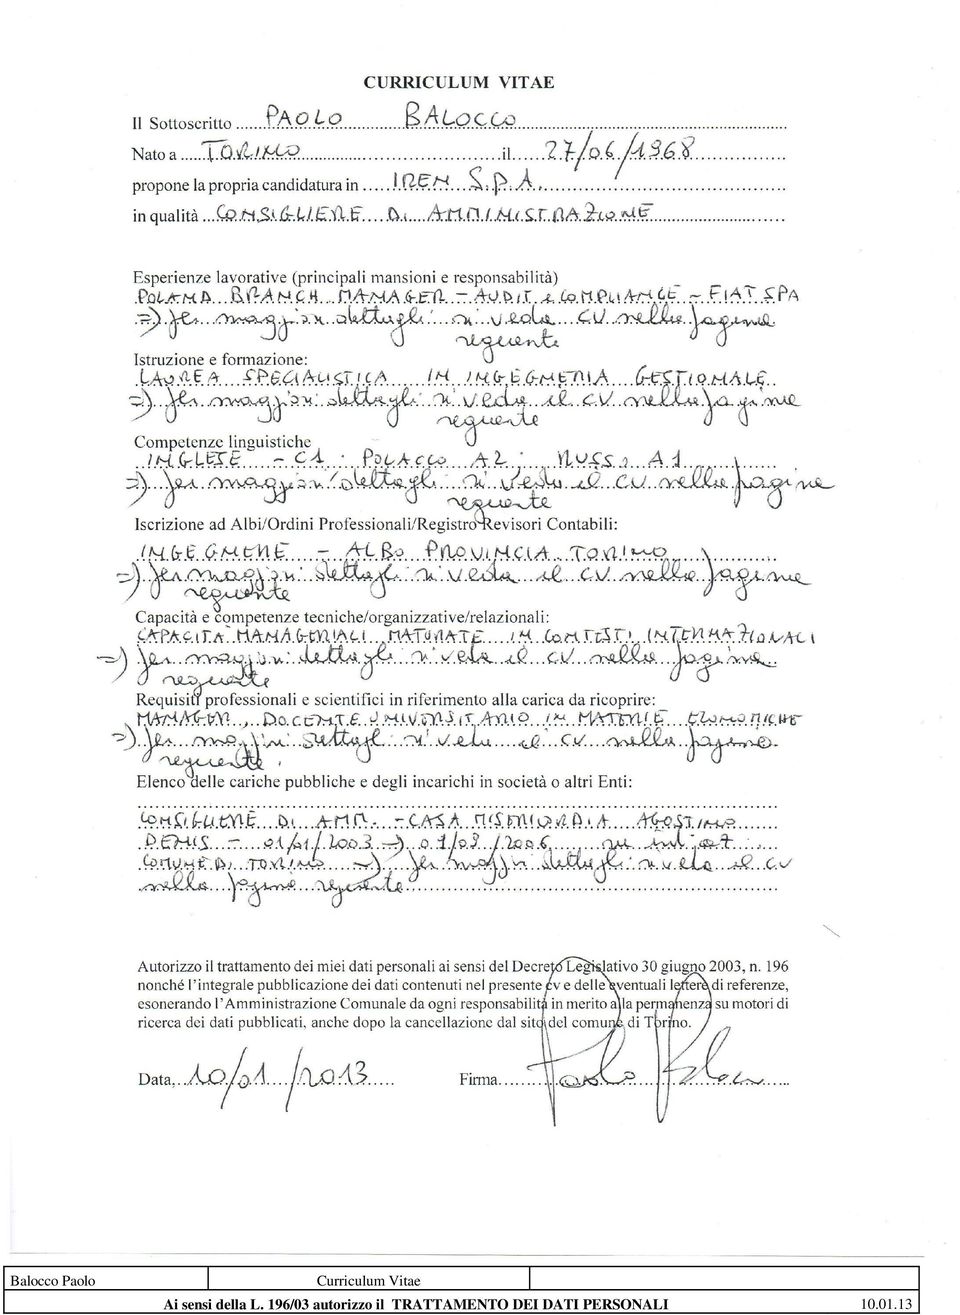 CURRICULUM VITAE
Il Sottoscritto PAOLO BALOCCO
Nato a TORINO il 27/06/1968
propone la propria candidatura in IREN S.P.A.
in qualità CONSIGLIERE DI AMMINISTRAZIONE
Esperienze lavorative (principali mansioni e responsabilità)
POLAND BRANCH MANAGER - AUDIT & COMPLIANCE - FIAT SPA
=> Per maggiori dettagli si veda CV nelle pagine
seguenti
Istruzione e formazione:
LAUREA SPECIALISTICA IN INGEGNERIA GESTIONALE
=> Per maggiori dettagli si veda il CV nelle pagine
seguenti
Competenze linguistiche
INGLESE - C1 ; POLACCO A2 ; RUSSO A1
=> Per maggiori dettagli si veda il CV nelle pagine
seguenti
Iscrizione ad Albi/Ordini Professionali/Registro Revisori Contabili:
INGEGNERE - ALBO PROVINCIA TORINO
=> Per maggiori dettagli si veda il CV nelle pagine
seguenti
Capacità e competenze tecniche/organizzative/relazionali:
CAPACITA' MANAGERIALI MATURATE IN CONTESTI INTERNAZIONALI
=> Per maggiori dettagli si veda il CV nelle pagine
seguenti
Requisiti professionali e scientifici in riferimento alla carica da ricoprire:
MANAGER, DOCENTE UNIVERSITARIO IN MATERIE ECONOMICHE
=> Per maggiori dettagli si veda il CV nelle pagine
seguenti
Elenco delle cariche pubbliche e degli incarichi in società o altri Enti:
CONSIGLIERE DI AMM. - CASA MISERICORDIA AGOSTINO
DEMIS - 01/01/2003 => 07/03/2006
COMUNE DI TORINO => Per maggiori dettagli si veda il CV
nelle pagine seguenti
Autorizzo il trattamento dei miei dati personali ai sensi del Decreto Legislativo 30 giugno 2003, n. 196
nonché l'integrale pubblicazione dei dati contenuti nel presente cv e delle eventuali lettere di referenze,
esonerando l'Amministrazione Comunale da ogni responsabilità in merito alla permanenza su motori di
ricerca dei dati pubblicati, anche dopo la cancellazione dal sito del comune di Torino.
Data, 10/01/2013 Firma Paolo Balocco
Balocco Paolo Curriculum Vitae
Ai sensi della L. 196/03 autorizzo il TRATTAMENTO DEI DATI PERSONALI 10.01.13